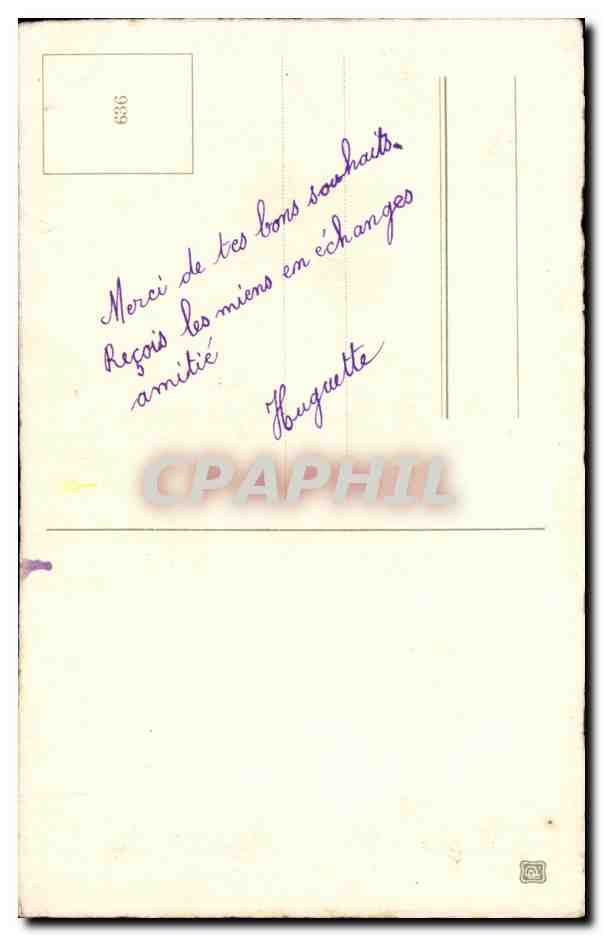 636
Merci de tes bons souhaits.
Reçois les miens en échanges
amitié
Huguette
CPAPHIL